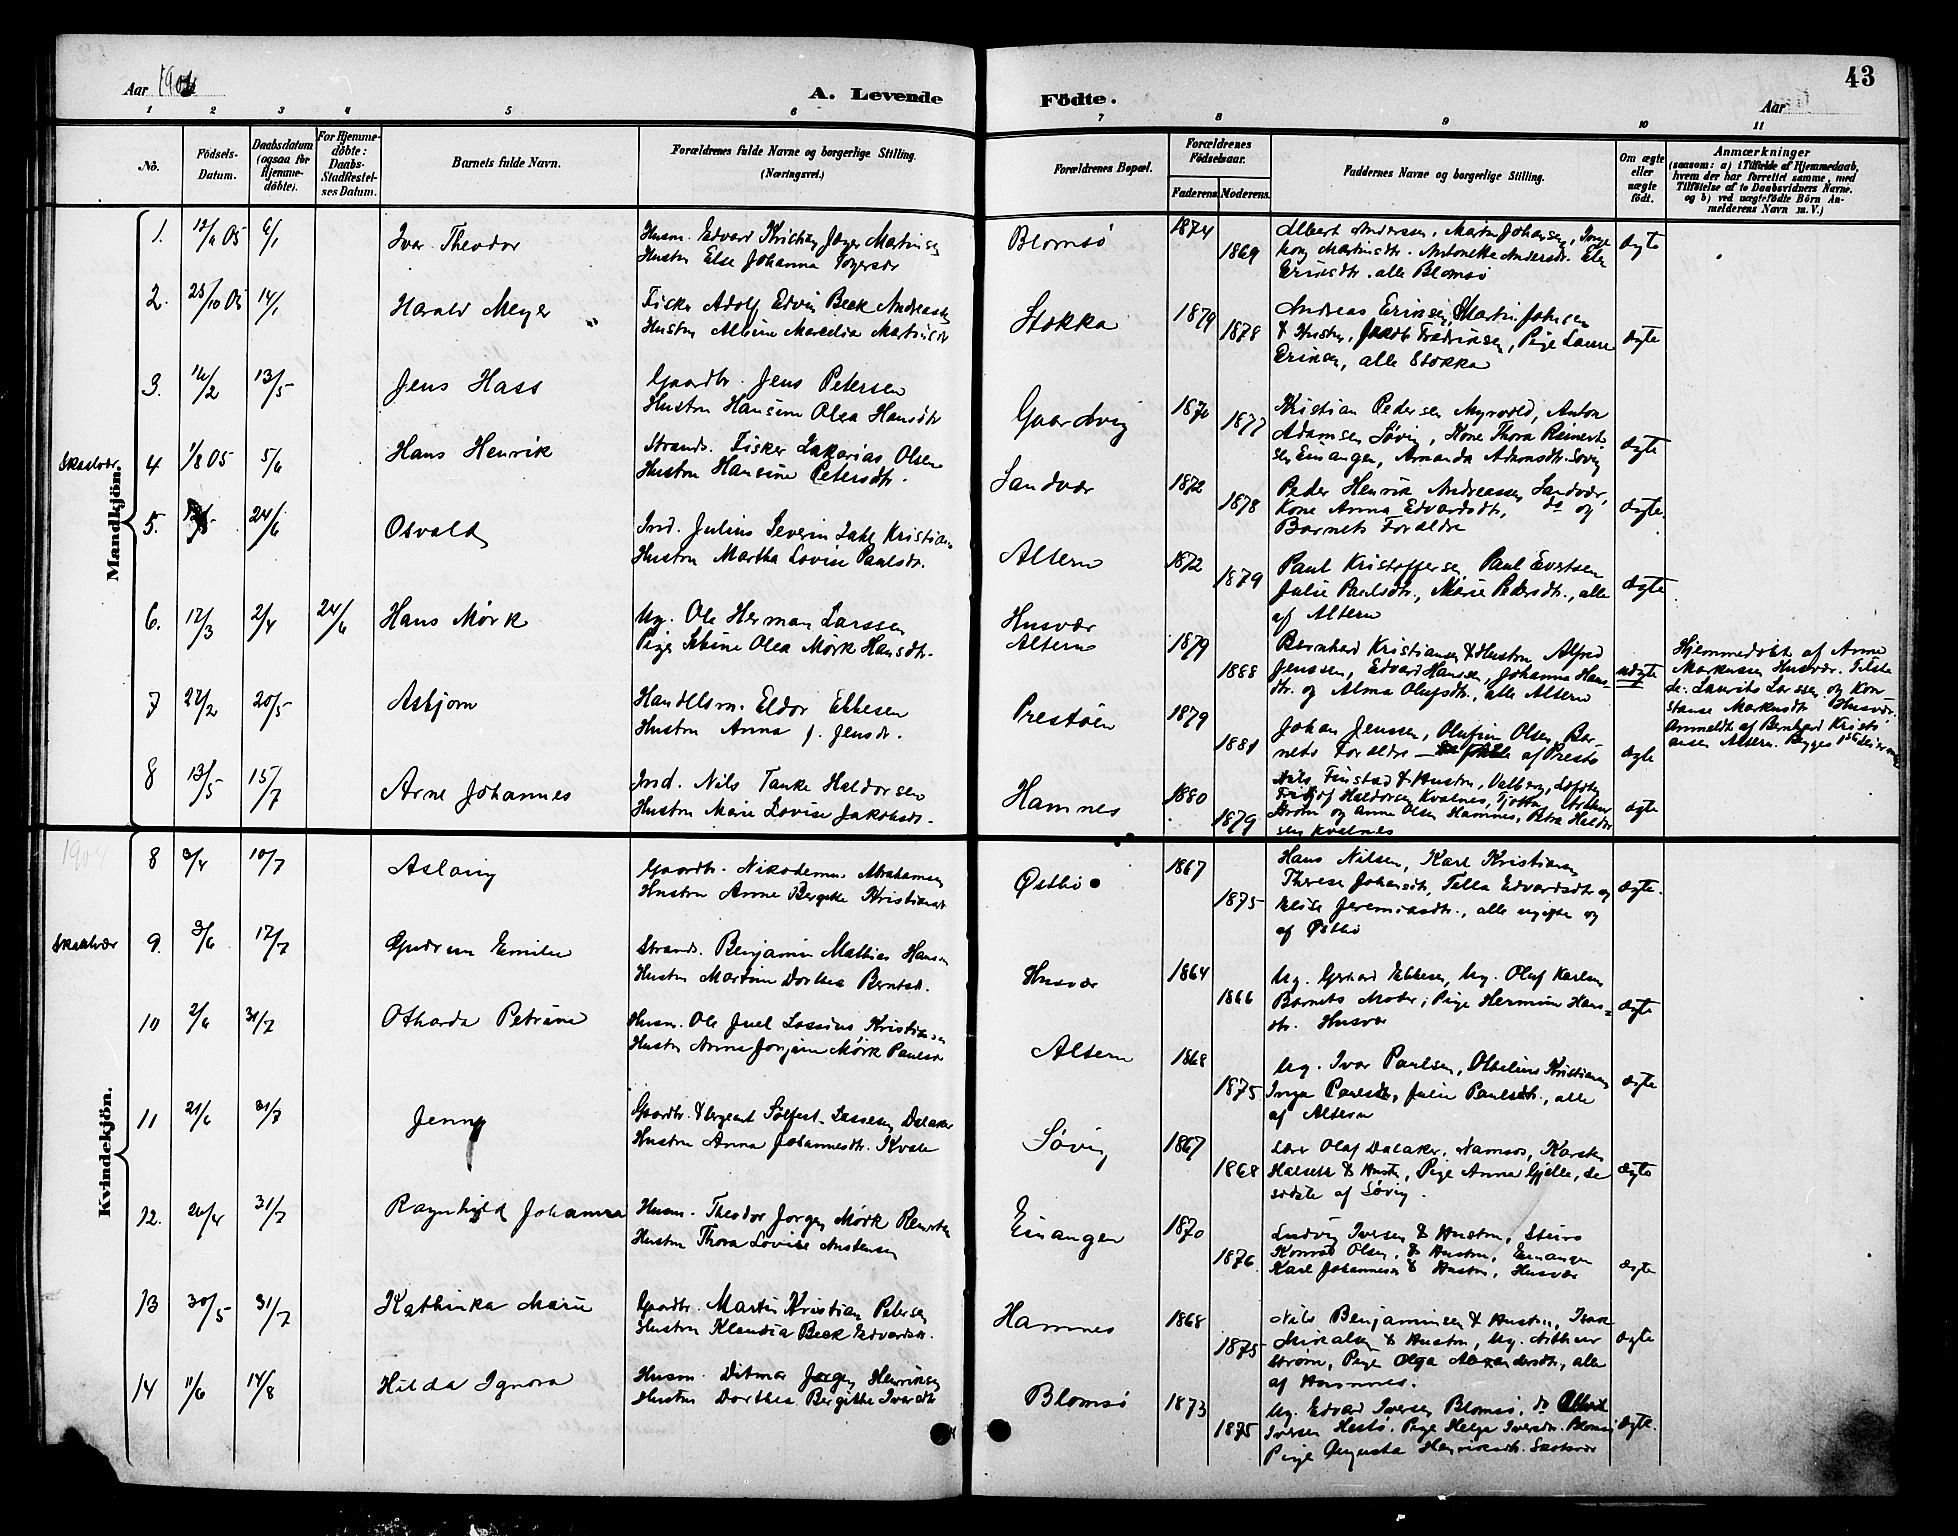 43
Aar 190
A. Levende Födte.
Aar
1 2 3 4 5 6 7 8 9 10 11
Nö. Födsels-Datum. Daabsdatum (ogsaa for Hjemme-döbte). For Hjemme-döbte: Daabs-Stadfæstel-ses Datum. Barnets fulde Navn. Forældrenes fulde Navne og borgerlige Stilling. (Næringsvei.) Forældrenes Bopæl. Forældrenes Födselsaar. Faderens Moderens. Faddernes Navne og borgerlige Stilling. Om ægte eller uægte födt. Anmærkninger
(saasom: a) i Tilfælde af Hjemmedaab,
hvem der har forrettet samme, med
Tilföielse af to Daabsvidners Navne.
og b) ved uægtefödte Börn An-
melderens Navn m. V.)
Mandkjön.
1. 6/1 Ivar Theodor Husm. Edvard Kristian Martinsen
Hustru Else Johanna
Blomsö 1874 1869 Albert Anderssen, Martin Johansen,
Martinsdtr. Antonette Andersdtr.
alle Blomsö ægte
2. 14/1 Harald Meyer Fisker Adolf Edvin Beck Andreassen
Hustru Albine Martinsdtr
Stokka 1879 1878 Andreas Martin Johnsen
& Hustru, Pige
alle Stokka ægte
3. 13/5 Jens Hass Gaardbr. Jens Petersen
Hustru Hansine Olea Hansdtr
Gaardvig 1870 1877 Kristian Pedersen Myrvold, Anton
Adamsen Søvig, Kone Thora Reinert-
sen Einangen, Amanda Søvig ægte
Skaalvær 4 1/8 05 5/6 Hans Henrik Strands. Fisker Zakarias Olsen
Hustru Hansine Petersdtr.
Sandvær 1872 1878 Peder Henrik Andreassen Sandvær,
Kone Anna Edvardsdtr, do og
Barnets Forældre ægte.
5. 24/6 Osvald Ind. Julius Severin Kristian
Hustru Martha Lovise Paulsdtr.
Altern 1872 1879 Paul Kristoffersen, Paul Evertsen
Julie Paulsdtr., Marie Pedersdtr., alle
af Altern ægte
6. 17/3 2/4 24/6 Hans Mørk Ug. Ole Herman Larssen
Pige Sebine Olea Mørk Hansdtr.
Husvær
Altern 1879 1888 Bernhard Kristiansen & Hustru, Alfred
Jenssen, Edvard Hansen, Johanna Hans-
dtr. og Alma Olufsdtr., alle Altern uægte
Hjemmedøbt af Anne
Markussen Husvær. Tilste-
de: Laurits Larssen og Kon-
stanse Markusdtr Husvær.
Anmeldt af Bernhard Kristi-
ansen Altern.
7 27/2 20/5 Asbjørn Handelsm. Eldor Ebbesen
Hustru Anna J. Jensdtr.
Prestøen 1879 1881 Johan Jenssen, Olufine Olsen, Bar-
nets Forældre af Prestø ægte
8 13/5 15/7 Arne Johannes Ind. Nils Tanke Haldorsen
Hustru Marie Lovise Jakobsdtr.
Hamnes 1880 1879 Nils Finstad & Hustru, Valborg,
Fritjof Haldorsen Kvalnes, Tjøtta, Arthur
Strøm og Anne Olsen Hamnes, Petra Haldor-
sen Kvalnes ægte
Kvindekjön.
1904
8 3/4 10/7 Aslaug Gaardbr. Nikodemus Abrahamsen
Hustru Anne Bergitte Kristiansdtr
Østbö 1867 1875 Hans Nilsen, Karl Kristiansen
Therese Johansdtr, Tella Edvardsdtr og
Elise Jeremiasdtr., alle ugifte og
af Østbö ægte.
Skaalvær 9. 3/6 17/7 Gudrun Emilie Strands. Benjamin Mathias Hansen
Hustru Martine Dorthea Berntsdtr.
Husvær 1864 1866 Ug. Gerhard Ebbesen, Ug. Oluf Karlsen
Barnets Moder, Pige Hermine Hans-
dtr. Husvær ægte
10 2/6 31/7 Otharda Petrine Husm. Ole Juel Lossius Kristiansen
Hustru Anna Jørgine Mørk Paulsdtr
Altern 1868 1875 Ug. Ivar Paulsen, Othelius Kristiansen
Inga Paulsdtr, Julie Paulsdtr., alle
af Altern ægte
11 21/6 31/7 Jenny Gaardbr. & Sergeant Sølfest Lassesen Dalaker
Hustru Anna Johannesdtr. Kvale
Søvig 1867 1868 Lærer Olaf Dalaker, Namsos, Karsten
Halseth & Hustru, Pige Anna Gjelle, de
sidste af Søvig. ægte
12. 26/4 31/7 Ragnhild Johanna Husm. Theodor Jørgen Mørk Reinertsen
Hustru Thora Lovise Anstensen
Einangen 1870 1876 Ludvig Iversen & Hustru, Stuvø
Konrad Olsen & Hustru, Einangen
Karl Johannesen & Hustru, Husvær ægte
13 30/5 31/7 Kathinka Marie Gaardbr. Martin Kristian Petersen
Hustru Klaudia Beck Edvardsdtr.
Hamnes 1868 1875 Nils Benjaminsen & Hustru, Isak
Mikalsen & Hustru, Ug. Arthur
Strøm, Pige Olga Alexandersdtr, alle
af Hamnes. ægte
14 11/6 14/8 Hilda Ignora Husm. Ditmar Jørgen Henriksen
Hustru Dorthea Bergitte Iversdtr
Blomsö 1873 1875 Ug. Edvard Iversen Blomsö, do
Iversen Hestö, Pige Helga Iversdtr. Blomsö
Pige Augusta Henriksdtr. ægte.